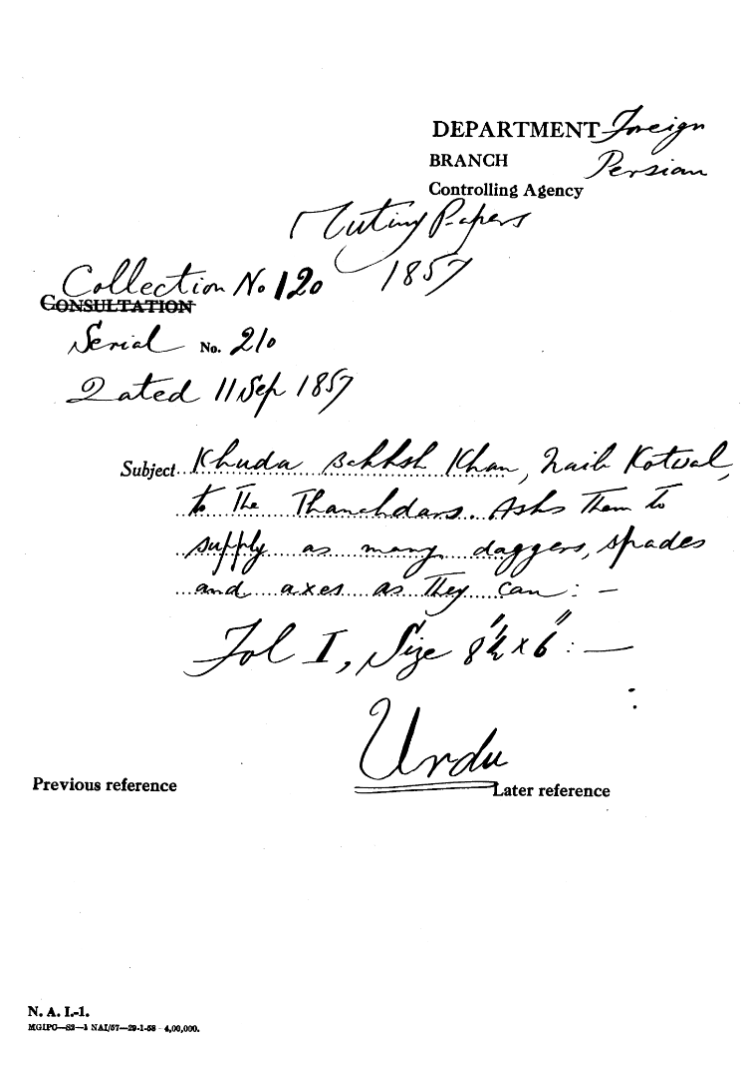 DEPARTMENT Foreign
BRANCH Persian
Controlling Agency
Mutiny Papers
1857
Collection No 120
CONSULTATION
Serial No. 210
Dated 11 Sep 1857
Subject Khuda Bakhsh Khan, Naib Kotwal,
to The Thanahdars. Asks Them to
supply as many daggers, spades
and axes as They can: —
Fol I, Size 8½" x 6": —
Urdu
Previous reference
Later reference
N. A. I.-1.
MGIPC—S2—1 NAI/57—29-1-58—4,00,000.